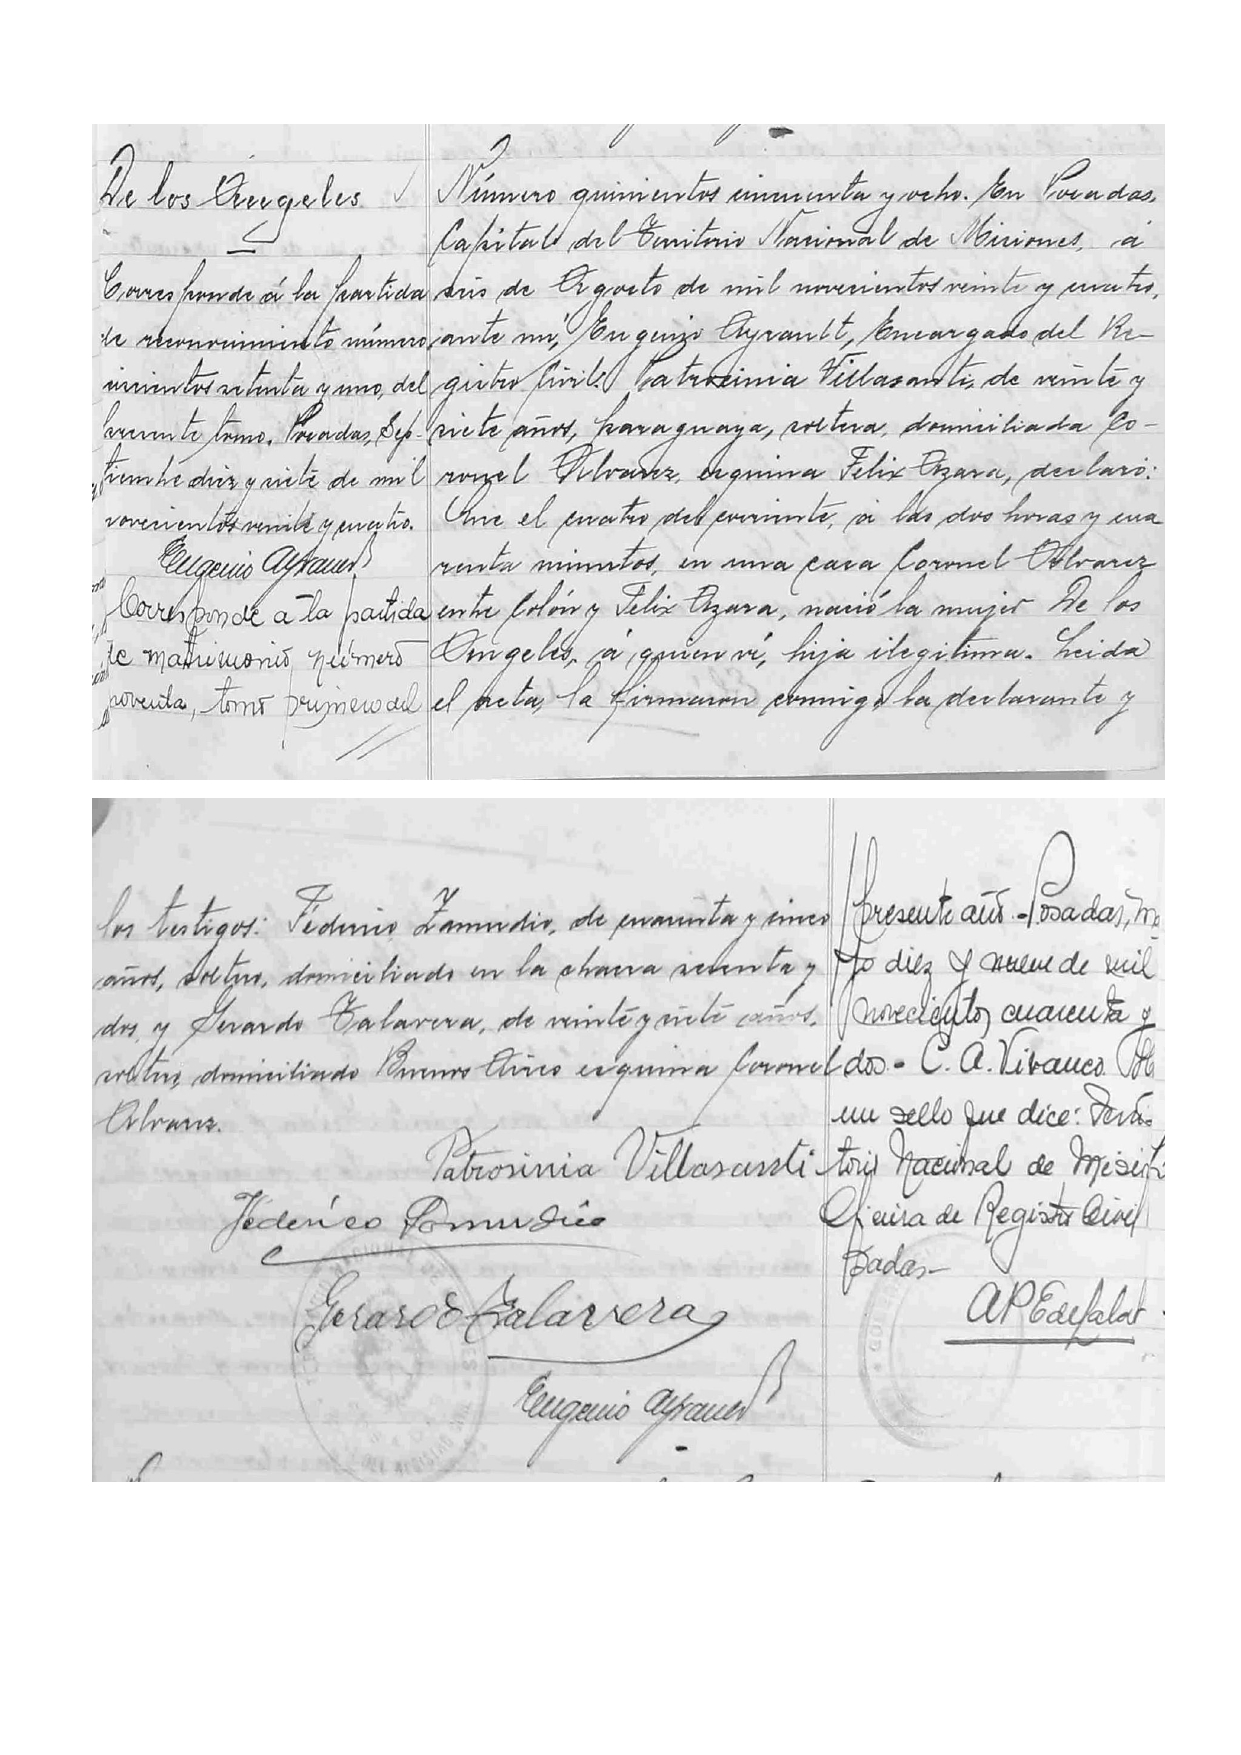 De los Angeles
Corresponde á la partida
de reconocimiento número
quinientos setenta y uno, del
presente tomo. Posadas, Sep-
tiembre diez y siete de mil
novecientos veinte y cuatro.
Eugenio Ayrault
Corresponde a la partida
de matrimonio número
noventa, tomo primero del
Número quinientos cincuenta y ocho. En Posadas,
Capital del Territorio Nacional de Misiones, á
seis de Agosto de mil novecientos veinte y cuatro,
ante mí, Eugenio Ayrault, Encargado del Re-
gistro Civil. Patrocinia Villasanti, de veinte y
siete años, paraguaya, soltera, domiciliada Co-
ronel Alvarez, esquina Felix Azara, declaró:
Que el cuatro del corriente, á las dos horas y cua
renta minutos, en una casa Coronel Alvarez
entre Colón y Felix Azara, nació la mujer De los
Angeles, á quien ví, hija ilegitima. Leida
el acta, la firmaron conmigo la declarante y
los testigos: Federico Zamudio, de cuarenta y cinco
años, soltero, domiciliado en la chacra setenta y
dos, y Gerardo Talavera, de veinte y siete años,
soltero, domiciliado Buenos Aires esquina Coronel
Alvarez.
Patrosinia Villasanti
Federico Zamudio
Gerardo Talavera
Eugenio Ayrault
presente año.-Posadas, ma
yo diez y nueve de mil
novecientos cuarenta y
dos.- C. A. Vivanco
un sello que dice: Terri-
torio Nacional de Misiones
Oficina de Registro Civil
Posadas-